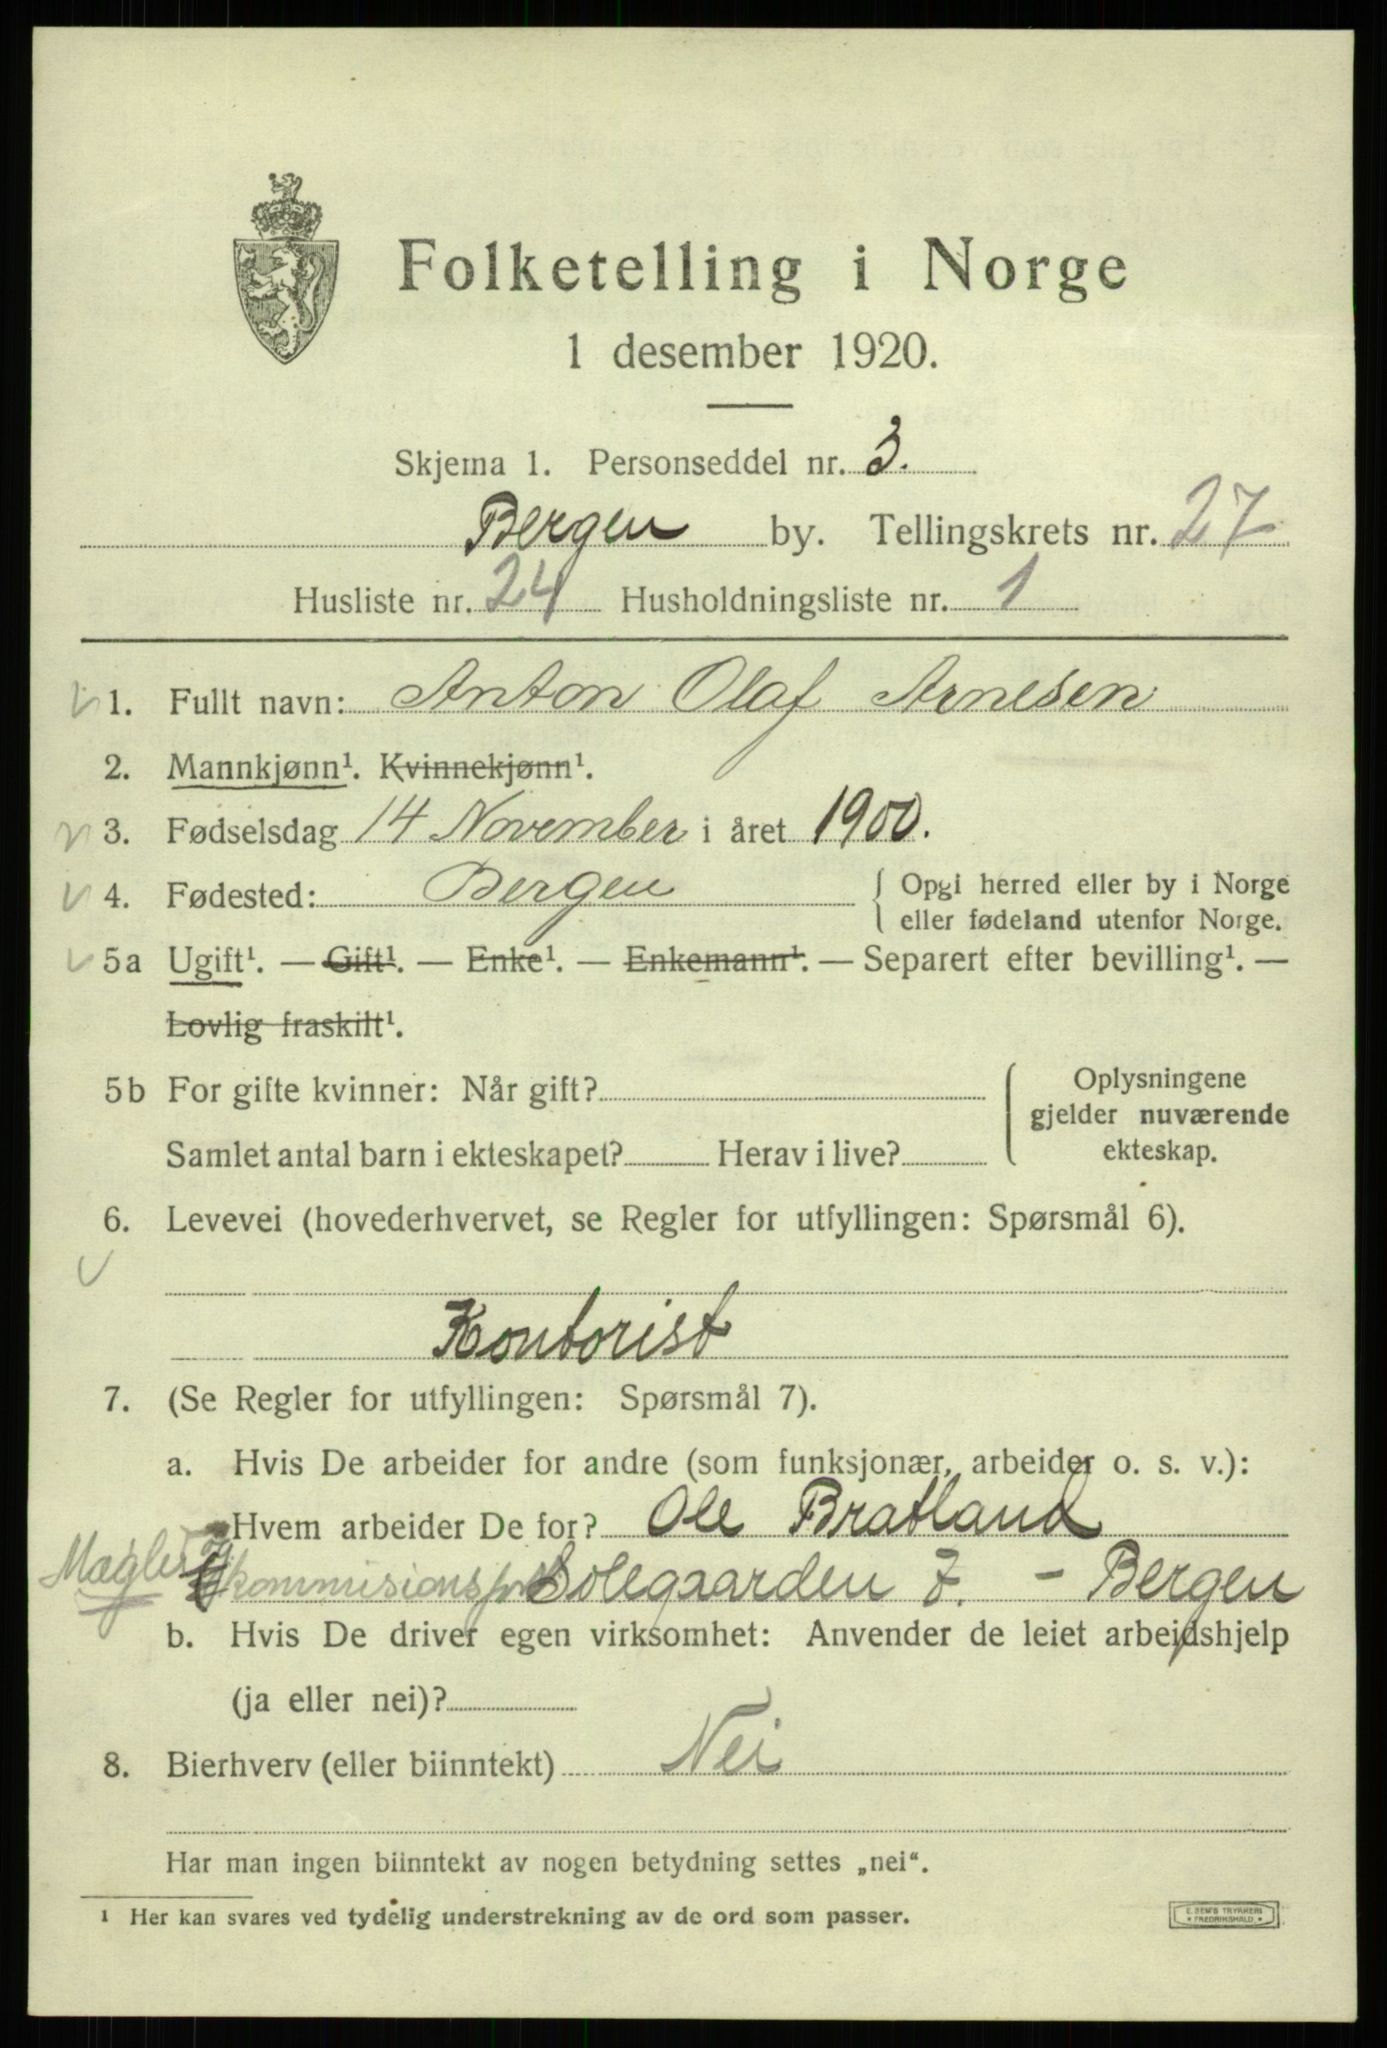 Folketelling i Norge
1 desember 1920.
Skjema 1. Personseddel nr. 3.
Bergen by. Tellingskrets nr. 27
Husliste nr. 24 Husholdningsliste nr. 1
1. Fullt navn: Anton Olaf Arnesen
2. Mannkjønn¹. Kvinnekjønn¹.
3. Fødselsdag 14 November i året 1900.
4. Fødested: Bergen { Opgi herred eller by i Norge
eller fødeland utenfor Norge.
5a Ugift¹. — Gift¹. — Enke¹. — Enkemann¹. — Separert efter bevilling¹. —
Lovlig fraskilt¹.
5b For gifte kvinner: Når gift? { Oplysningene
gjelder nuværende
Samlet antal barn i ekteskapet? Herav i live? ekteskap.
6. Levevei (hovederhvervet, se Regler for utfyllingen: Spørsmål 6).
Kontorist
7. (Se Regler for utfyllingen: Spørsmål 7).
a. Hvis De arbeider for andre (som funksjonær, arbeider o. s. v.):
Hvem arbeider De for? Ole Bratland
kommisions Solegaarden 7. - Bergen
b. Hvis De driver egen virksomhet: Anvender de leiet arbeidshjelp
(ja eller nei)?
8. Bierhverv (eller biinntekt) Nei
Har man ingen biinntekt av nogen betydning settes „nei“.
¹ Her kan svares ved tydelig understrekning av de ord som passer.
E. SEM'S TRYKKERI
* FREDRIKSHALD *